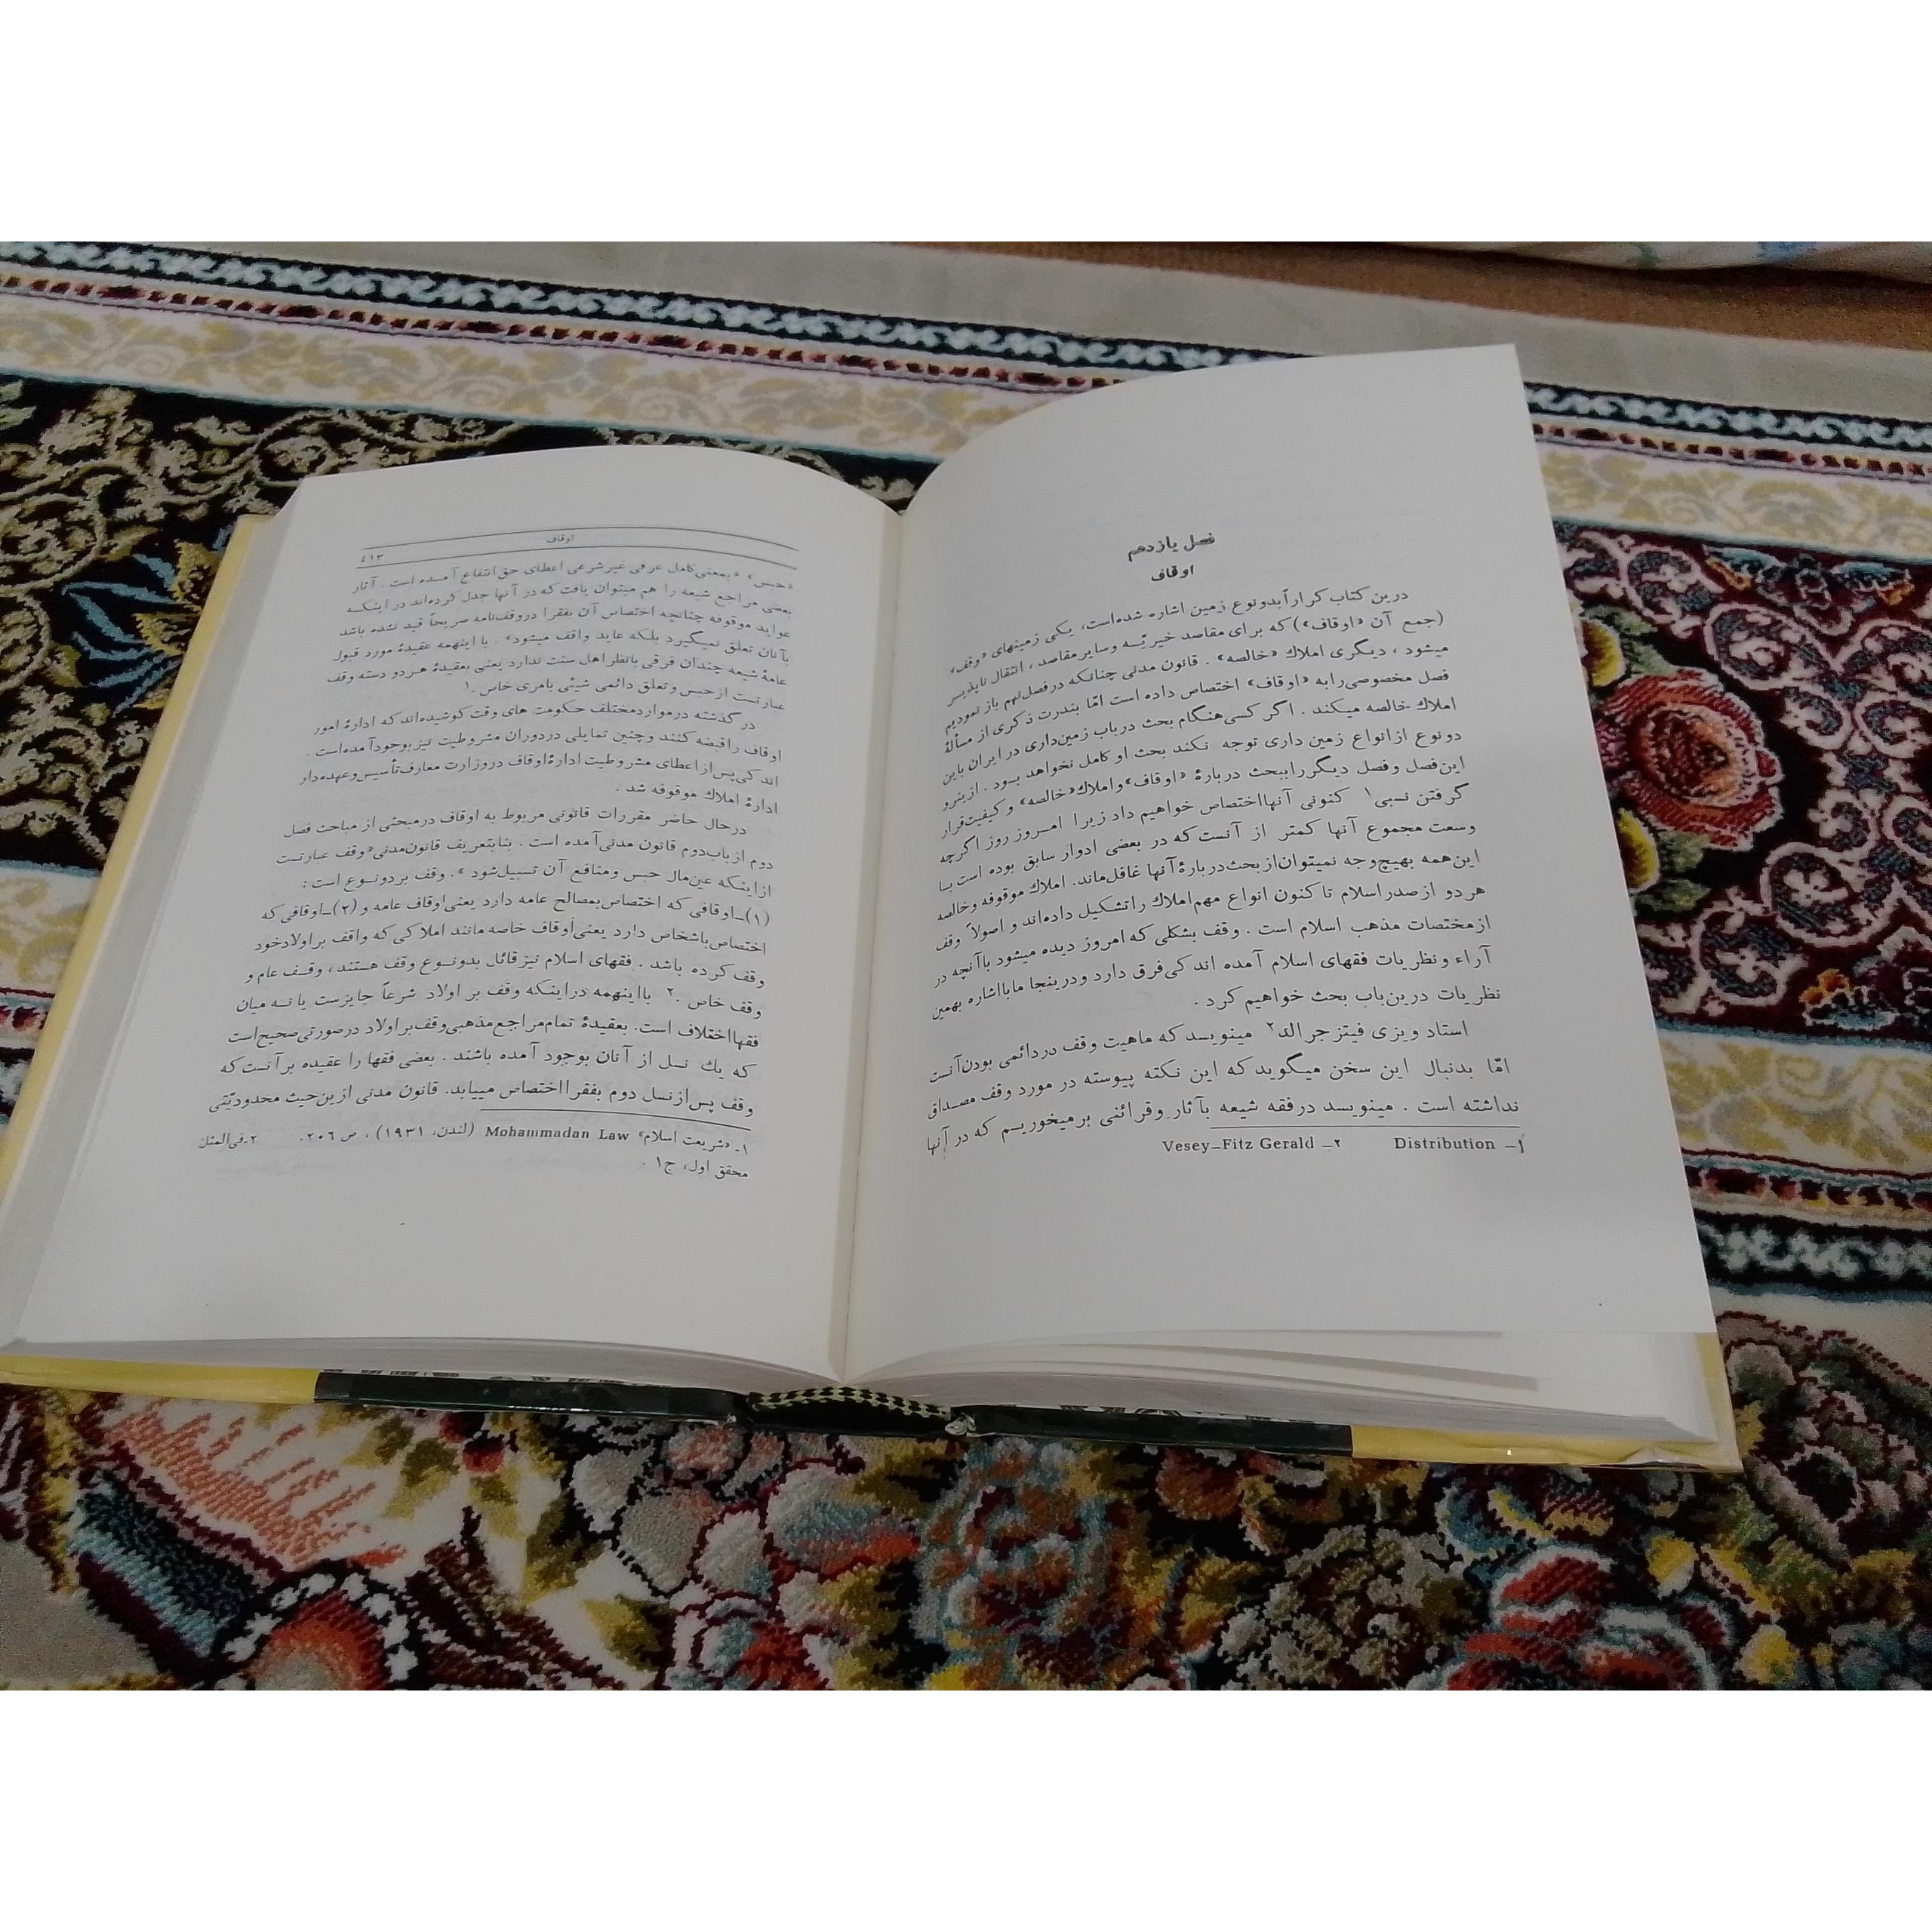 فصل یازدهم
اوقاف
درین کتاب کراراً بدونوع زمین اشاره شده‌است، یکی زمینهای «وقف»
(جمع آن «اوقاف») که برای مقاصد خیریّه و سایر مقاصد، انتقال ناپذیر
میشود، دیگری املاك «خالصه». قانون مدنی چنانکه در فصل نهم باز نمودیم
فصل مخصوصی را به «اوقاف» اختصاص داده است امّا بندرت ذکری از مسألهٔ
املاك خالصه میکند. اگر کسی هنگام بحث در باب زمین‌داری در ایران باین
دونوع از انواع زمین داری توجه نکند بحث او کامل نخواهد بود. ازینرو
این فصل و فصل دیگر را ببحث دربارهٔ «اوقاف» و املاك «خالصه» و کیفیت قرار
گرفتن نسبی۱ کنونی آنها اختصاص خواهیم داد زیرا امروز روز اگرچه
وسعت مجموع آنها کمتر از آنست که در بعضی ادوار سابق بوده است با
این همه بهیچوجه نمیتوان از بحث دربارهٔ آنها غافل ماند. املاك موقوفه و خالصه
هر دو از صدر اسلام تا کنون انواع مهم املاك را تشکیل داده‌اند و اصولاً وقف
از مختصات مذهب اسلام است. وقف بشکلی که امروز دیده میشود با آنچه در
آراء و نظریات فقهای اسلام آمده اندکی فرق دارد و درینجا ما با اشاره بهمین
نظریات درین باب بحث خواهیم کرد.
استاد ویزی فیتز جرالد۲ مینویسد که ماهیت وقف در دائمی بودن آنست
امّا بدنبال این سخن میگوید که این نکته پیوسته در مورد وقف مصداق
نداشته است. مینویسد در فقه شیعه بآثار و قرائنی برمیخوریم که در آنها
۱- Distribution ۲- Vesey-Fitz Gerald
اوقاف ٤١٣
«حبس» «بمعنی کامل عرفی غیر شرعی اعطای حق انتفاع آمده است. آثار
بعضی مراجع شیعه را هم میتوان یافت که در آنها جدل کرده‌اند در اینکه
عواید موقوفه چنانچه اختصاص آن بفقرا در وقف‌نامه صریحاً قید نشده باشد
بآنان تعلق نمیگیرد بلکه عاید واقف میشود». با اینهمه عقیدهٔ مورد قبول
عامهٔ شیعه چندان فرقی با نظر اهل سنت ندارد یعنی بعقیدهٔ هر دو دسته وقف
عبارتست از حبس و تعلق دائمی شیئی بامری خاص.۱
در گذشته در موارد مختلف حکومت های وقت کوشیده‌اند که ادارهٔ امور
اوقاف را قبضه کنند و چنین تمایلی در دوران مشروطیت نیز بوجود آمده‌است.
اندکی پس از اعطای مشروطیت ادارهٔ اوقاف در وزارت معارف تأسیس و عهده‌دار
ادارهٔ املاك موقوفه شد.
در حال حاضر مقررات قانونی مربوط به اوقاف در مبحثی از مباحث فصل
دوم از باب دوم قانون مدنی آمده است. بنابتعریف قانون مدنی «وقف عبارتست
از اینکه عین مال حبس و منافع آن تسبیل شود». وقف بر دونوع است:
(۱)-اوقافی که اختصاص بمصالح عامه دارد یعنی اوقاف عامه و (۲)-اوقافی که
اختصاص باشخاص دارد یعنی اوقاف خاصه مانند املاکی که واقف بر اولاد خود
وقف کرده باشد. فقهای اسلام نیز قائل بدونوع وقف هستند، وقف عام و
وقف خاص.۲ با اینهمه در اینکه وقف بر اولاد شرعاً جایزست یا نه میان
فقها اختلاف است. بعقیدهٔ تمام مراجع مذهبی وقف بر اولاد در صورتی صحیح است
که یك نسل از آنان بوجود آمده باشند. بعضی فقها را عقیده بر آنست که
وقف پس از نسل دوم بفقرا اختصاص مییابد. قانون مدنی ازین حیث محدودیّتی
۱- «شریعت اسلام» Mohammadan Law (لندن، ۱۹۳۱)، ص ۲۰٦. ۲-فی‌المثل
محقق اول، ج۱.